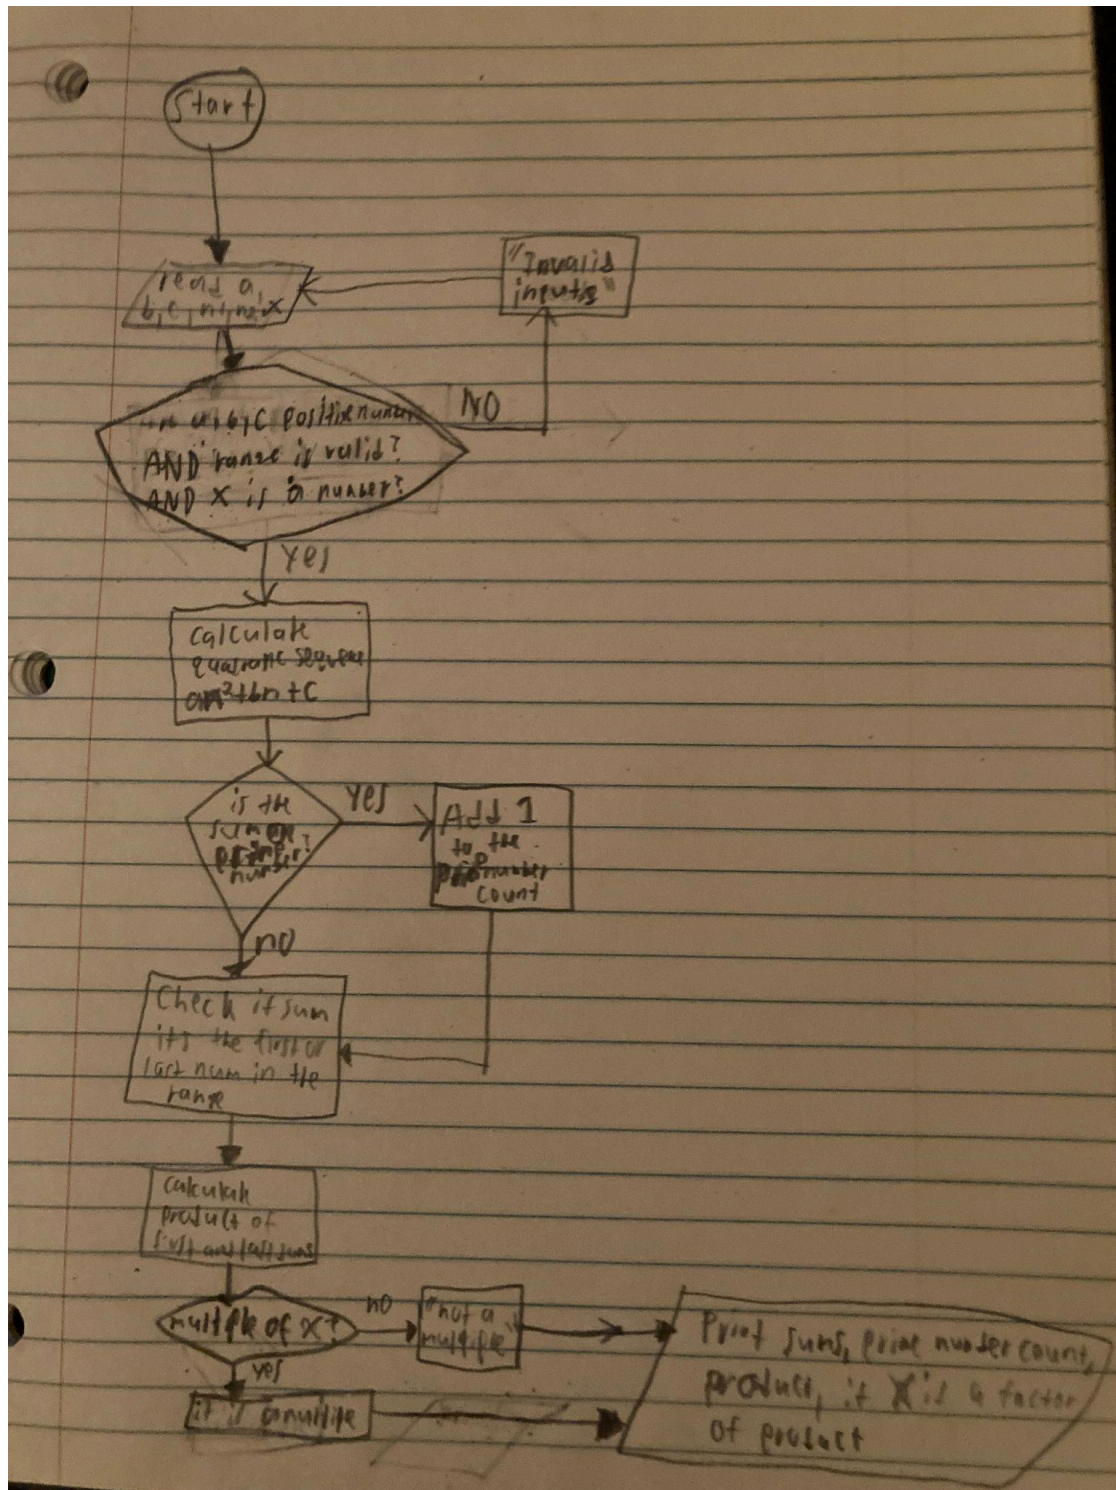 Start
read a,
b, c, n1, n2, x
"Invalid
inputs"
a, b, c positive number
AND range is valid?
AND X is a number?
NO
yes
calculate
quadratic sequence
an²+bn+c
is the
sum a
prime
number?
yes
Add 1
to the
number
count
no
Check if sum
its the first or
last num in the
range
calculate
product of
first and last sums
multiple of x?
no
"not a
multiple"
yes
it is a multiple
Print sums, prime number count,
product, if X is a factor
of product